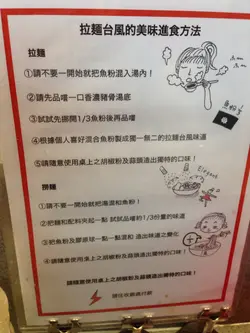 拉麵台風的美味進食方法
拉麵
①請不要一開始就把魚粉混入湯內！
②請先品嚐一口香濃豬骨湯底
③試試先挪開1/3魚粉後再品嚐
④根據個人喜好混合魚粉製成獨一無二的拉麵台風味道
⑤請隨意使用桌上之胡椒粉及蒜頭造出獨特的口味！
撈麵
①請不要一開始就把湯混和魚粉！
②把麵和配料夾起一點 試試品嚐約1/3份量的味道
③把魚粉及膠原球一點一點混和 造出味道之變化
④請隨意使用桌上之胡椒粉及蒜頭造出獨特的口味！
請隨意使用桌上之胡椒粉及蒜頭造出獨特的口味！
魚粉
Elegant